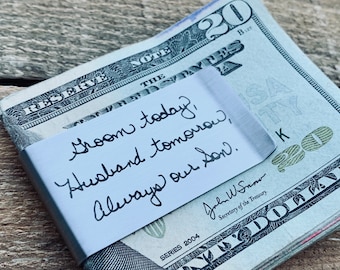 20
RESERVE NOTE
Groom today,
Husband tomorrow,
Always our Son.
K
20
John W Snow
Secretary of the Treasury.
SERIES 2004